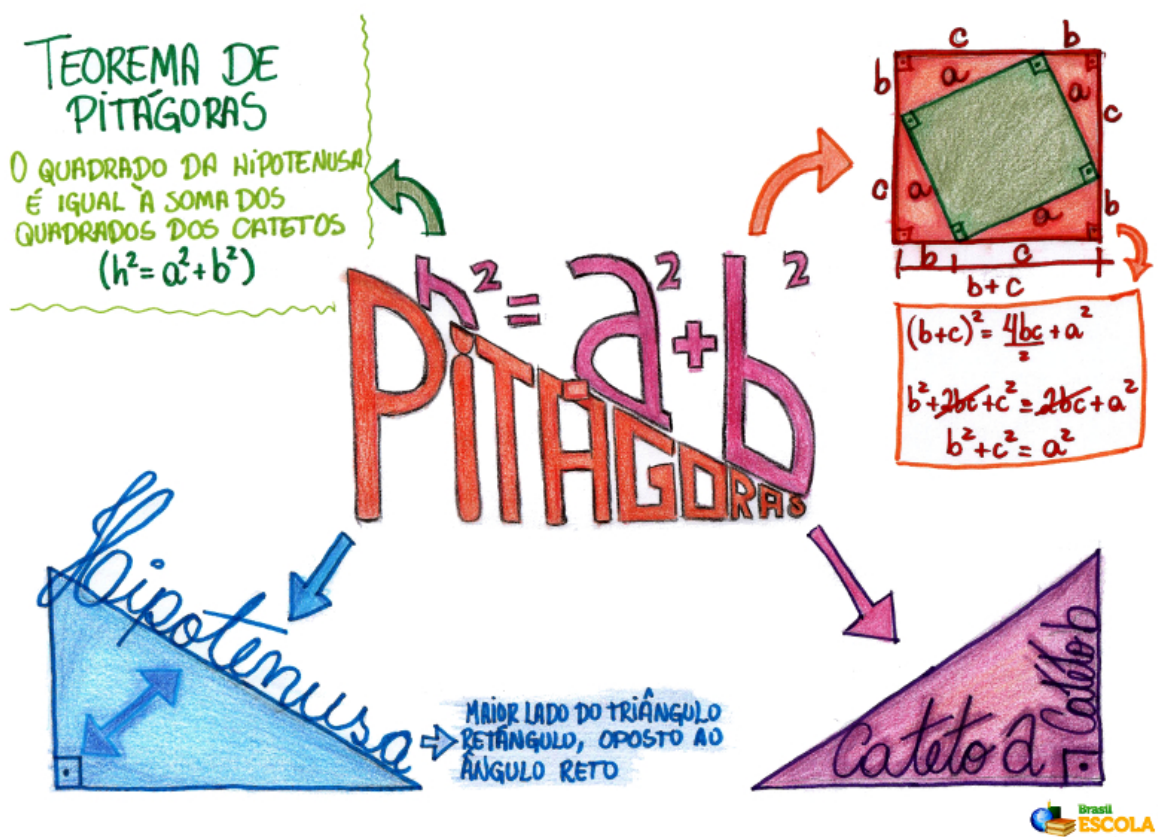 TEOREMA DE
PITÁGORAS
O QUADRADO DA HIPOTENUSA
É IGUAL À SOMA DOS
QUADRADOS DOS CATETOS
(h²= a²+b²)
h²= a²+b²
PITÁGORAS
c b
b a a c
c a a b
b c
b+c
(b+c)²= 4bc/2 +a²
b²+2bc+c²= 2bc+a²
b²+c²= a²
Hipotenusa
MAIOR LADO DO TRIÂNGULO
RETÂNGULO, OPOSTO AO
ÂNGULO RETO
Cateto a
Cateto b
Brasil
ESCOLA